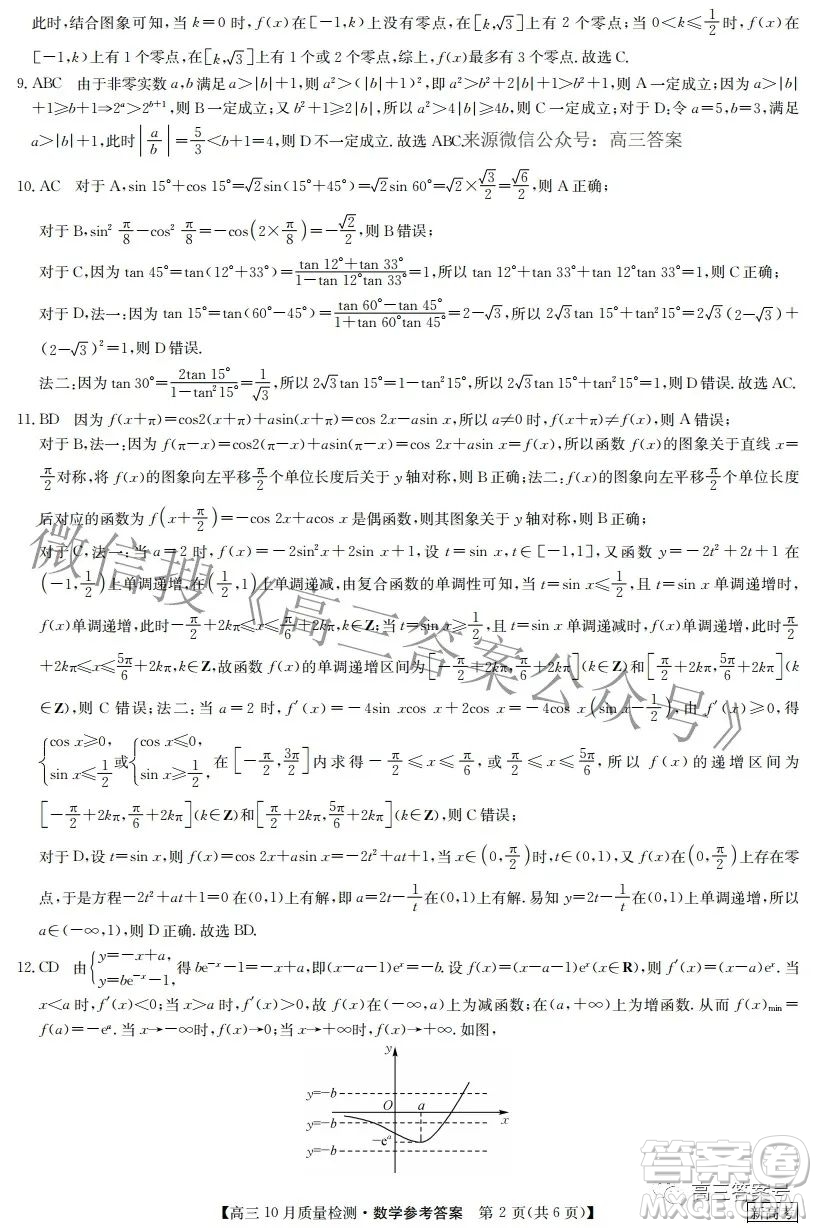 此时,结合图象可知,当 k=0 时,f(x)在[-1,k)上没有零点,在[k,√3]上有 2 个零点;当 0<k≤1/2时,f(x)在
[-1,k)上有 1 个零点,在[k,√3]上有 1 个或 2 个零点,综上,f(x)最多有 3 个零点.故选 C.
9. ABC 由于非零实数 a,b 满足 a>|b|+1,则 a²>(|b|+1)²,即 a²>b²+2|b|+1>b²+1,则 A 一定成立;因为 a>|b|
+1≥b+1⇒2ᵃ>2ᵇ⁺¹,则 B 一定成立;又 b²+1≥2|b|,所以 a²>4|b|≥4b,则 C 一定成立;对于 D:令 a=5,b=3,满足
a>|b|+1,此时|a/b|=5/3<b+1=4,则 D 不一定成立.故选 ABC.来源微信公众号：高三答案
10. AC 对于 A,sin 15°+cos 15°=√2sin(15°+45°)=√2sin 60°=√2×√3/2=√6/2,则 A 正确;
对于 B,sin² π/8-cos² π/8=-cos(2×π/8)=-√2/2,则 B 错误;
对于 C,因为 tan 45°=tan(12°+33°)=(tan 12°+tan 33°)/(1-tan 12°tan 33°)=1,所以 tan 12°+tan 33°+tan 12°tan 33°=1,则 C 正确;
对于 D,法一:因为 tan 15°=tan(60°-45°)=(tan 60°-tan 45°)/(1+tan 60°tan 45°)=2-√3,所以 2√3 tan 15°+tan²15°=2√3(2-√3)+
(2-√3)²=1,则 D 错误.
法二:因为 tan 30°=2tan 15°/(1-tan²15°)=1/√3,所以 2√3 tan 15°=1-tan²15°,所以 2√3 tan 15°+tan²15°=1,则 D 错误.故选 AC.
11. BD 因为 f(x+π)=cos2(x+π)+asin(x+π)=cos 2x-asin x,所以 a≠0 时,f(x+π)≠f(x),则 A 错误;
对于 B,法一:因为 f(π-x)=cos2(π-x)+asin(π-x)=cos 2x+asin x=f(x),所以函数 f(x)的图象关于直线 x=
π/2对称,将 f(x)的图象向左平移π/2个单位长度后关于 y 轴对称,则 B 正确;法二:f(x)的图象向左平移π/2个单位长度
后对应的函数为 f(x+π/2)=-cos 2x+acos x 是偶函数,则其图象关于 y 轴对称,则 B 正确;
对于 C,法一:当 a=2 时,f(x)=-2sin²x+2sin x+1,设 t=sin x,t∈[-1,1],又函数 y=-2t²+2t+1 在
(-1,1/2)上单调递增,在(1/2,1)上单调递减,由复合函数的单调性可知,当 t=sin x≤1/2,且 t=sin x 单调递增时,
f(x)单调递增,此时-π/2+2kπ≤x≤π/6+2kπ,k∈Z;当 t=sin x≥1/2,且 t=sin x 单调递减时,f(x)单调递增,此时π/2
+2kπ≤x≤5π/6+2kπ,k∈Z,故函数 f(x)的单调递增区间为[-π/2+2kπ,π/6+2kπ](k∈Z)和[π/2+2kπ,5π/6+2kπ](k
∈Z),则 C 错误;法二:当 a=2 时,f′(x)=-4sin xcos x+2cos x=-4cos x(sin x-1/2),由 f′(x)≥0,得
{cos x≥0, sin x≤1/2 或{cos x≤0, sin x≥1/2, 在[-π/2,3π/2]内求得-π/2≤x≤π/6,或π/2≤x≤5π/6,所以 f(x)的递增区间为
[-π/2+2kπ,π/6+2kπ](k∈Z)和[π/2+2kπ,5π/6+2kπ](k∈Z),则 C 错误;
对于 D,设 t=sin x,则 f(x)=cos 2x+asin x=-2t²+at+1,当 x∈(0,π/2)时,t∈(0,1),又 f(x)在(0,π/2)上存在零
点,于是方程-2t²+at+1=0 在(0,1)上有解,即 a=2t-1/t在(0,1)上有解.易知 y=2t-1/t在(0,1)上单调递增,所以
a∈(-∞,1),则 D 正确.故选 BD.
12. CD 由{y=-x+a, y=be⁻ˣ-1, 得 be⁻ˣ-1=-x+a,即(x-a-1)eˣ=-b.设 f(x)=(x-a-1)eˣ(x∈R),则 f′(x)=(x-a)eˣ.当
x<a 时,f′(x)<0;当 x>a 时,f′(x)>0,故 f(x)在(-∞,a)上为减函数;在(a,+∞)上为增函数.从而 f(x)min=
f(a)=-eᵃ.当 x→-∞时,f(x)→0;当 x→+∞时,f(x)→+∞.如图,
y
y=-b
O a x
y=-b
-eᵃ
y=-b
【高三 10 月质量检测·数学参考答案 第 2 页(共 6 页)】
新高考
微信搜《高三答案公众号》
高三答案号
答案圈
MXQE.COM